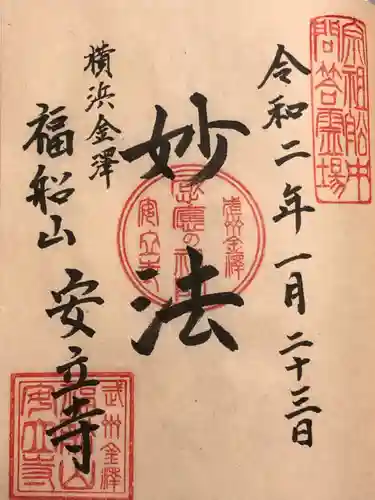 宗祖船中
問答霊場
令和二年一月二十三日
妙法
横浜金澤
福船山 安立寺
武州金澤
安立寺
武州金澤
福船山
安立寺